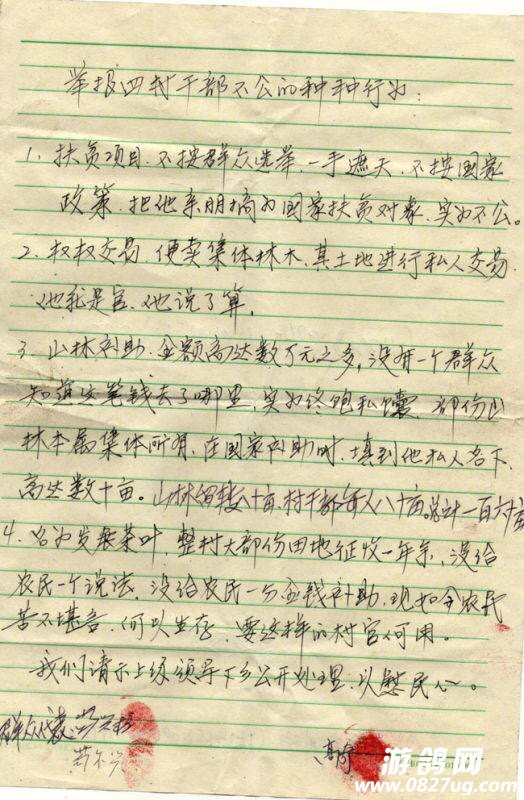 举报四村干部不公的种种行为:
1. 扶贫项目.不按群众选举.一手遮天.不按国家
政策.把他亲朋搞为国家扶贫对象.实为不公。
2. 权权交易.便卖集体林木.其土地进行私人交易.
他我是官.他说了算.
3. 山林补助.金额高达数万元之多,没有一个群众
知道这笔钱去了哪里,实为终饱私馕.部份山
林本属集体所有,在国家补助时.填到他私人名下.
高达数十亩。山林 八十亩.村干部每人八十亩。总计一百六十亩
4. 名为发展茶叶.整村大部份田地征收一年余,没给
农民一个说法.没给农民一分金钱补助.现如今农民
苦不堪言.何以生存.要这样的村官何用。
我们请示上级领导下乡公开处理.以慰民心。
群众代表:
游鸽网
www.0827ug.com